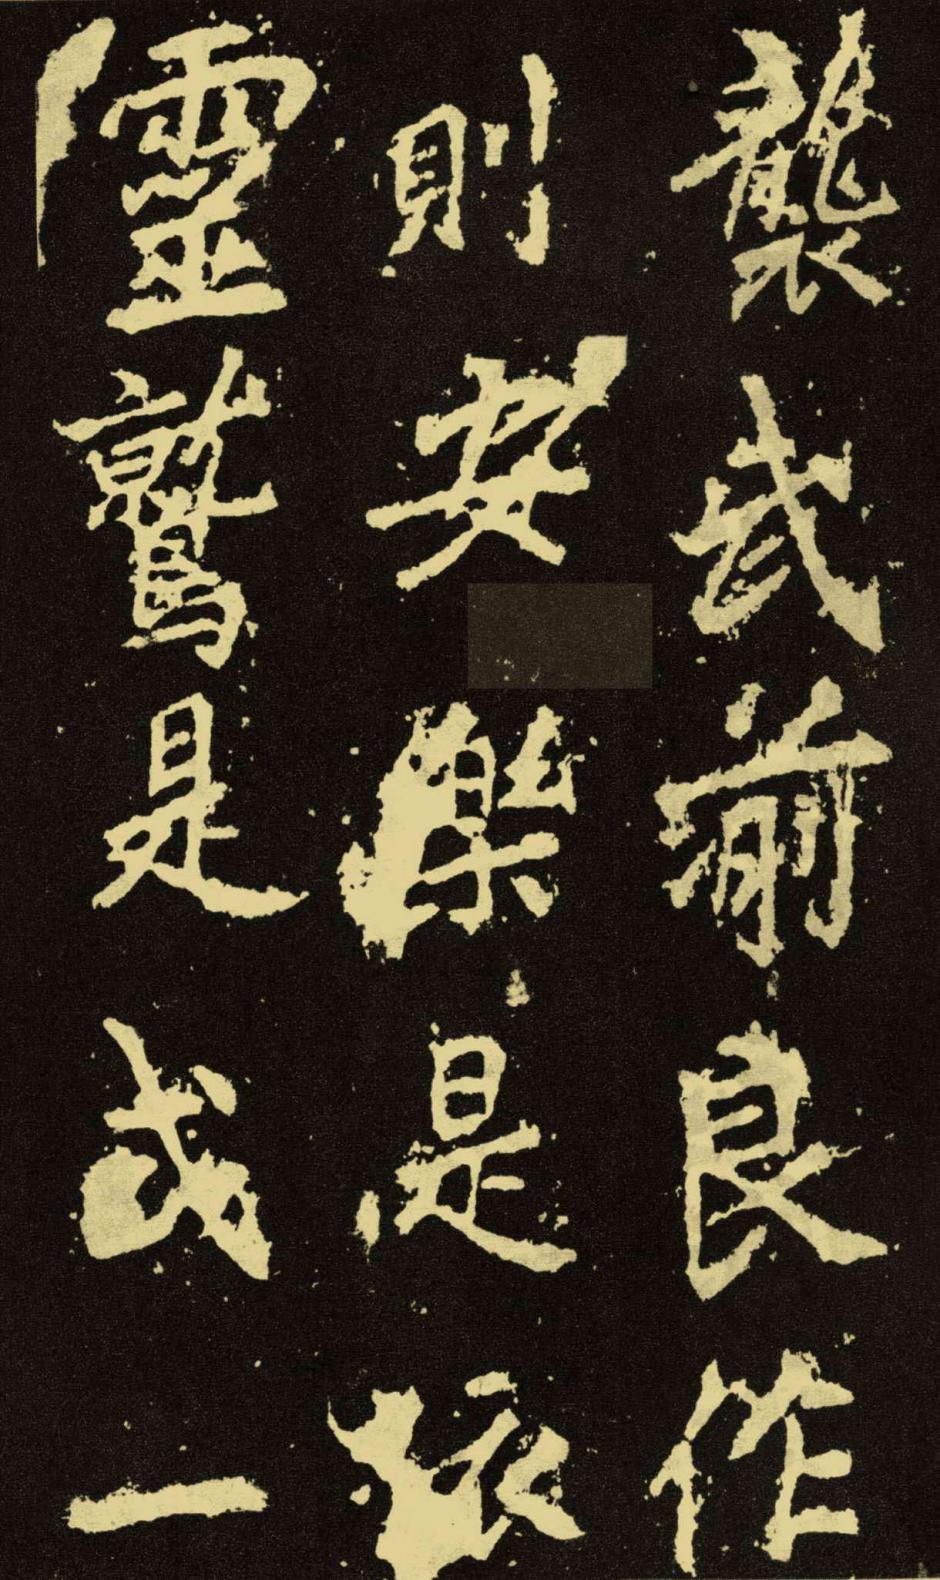 襲武前良作
則安樂是依
靈鷲是式一